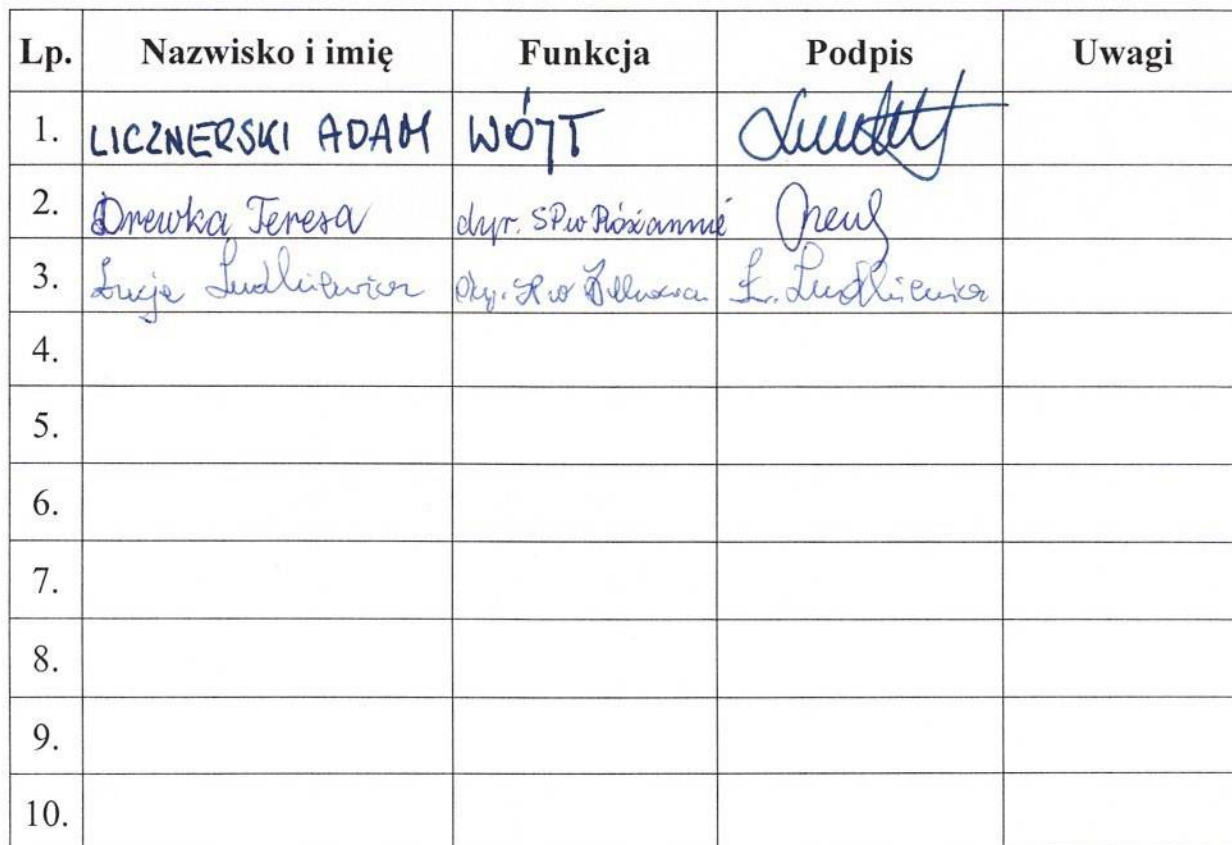 Lp. Nazwisko i imię Funkcja Podpis Uwagi
1. LICZNERSKI ADAM WÓJT
2. Drewka Teresa dyr. SP w Różannie
3. Łucja Ludkiewicz dyr. SP w Ł. Ludkiewicz
4.
5.
6.
7.
8.
9.
10.